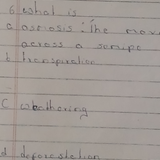 6 what is
a osmosis : The mov
across a semipe
b transpiration
C weathering
d deforestation